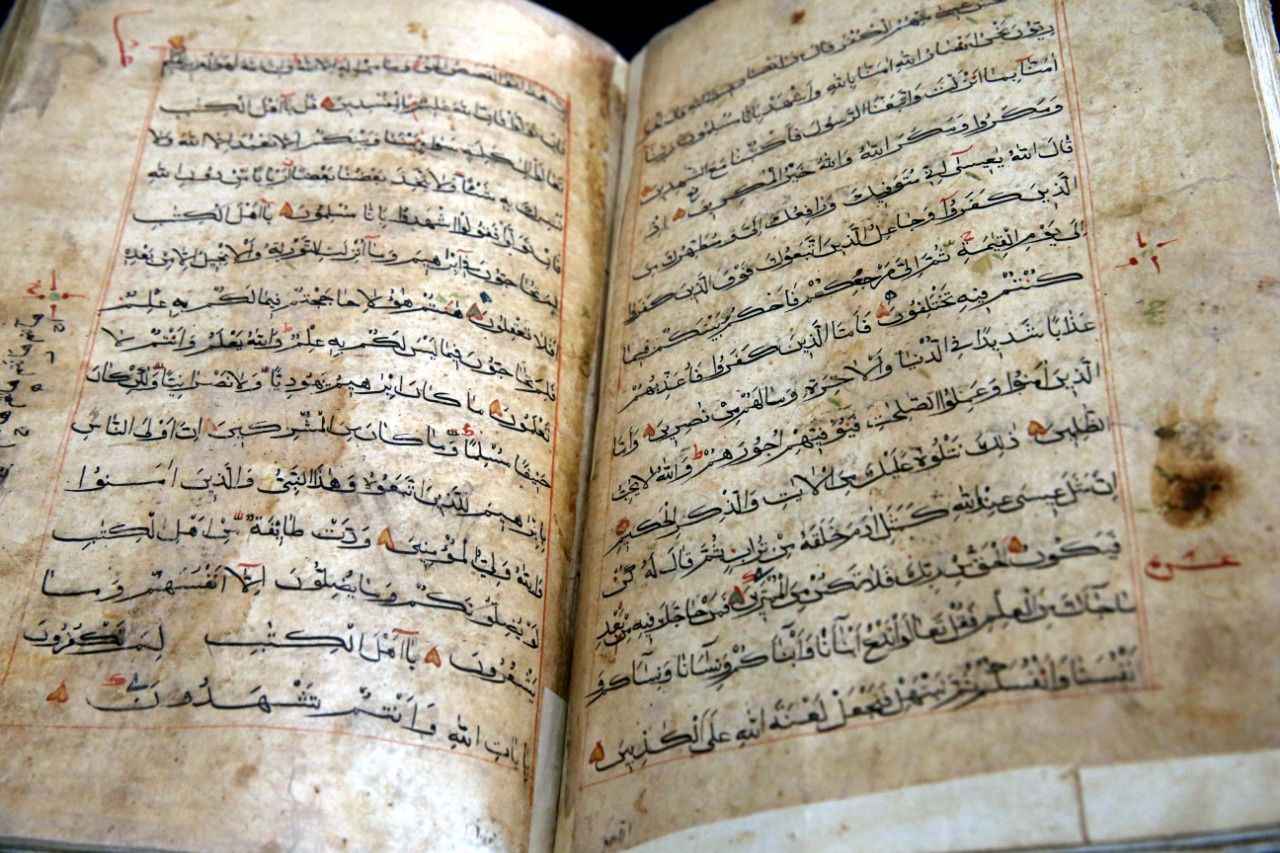 منهم الكفر قال من
ريون نحن انصار الله امنا بالله واشهد بانا مسلمون ربنا
امنا بما انزلت واتبعنا الرسول فاكتبنا مع الشهدين
ومكروا ومكر الله والله خير المكرين اذ
قال الله يعيسى اني متوفيك ورافعك الي ومطهرك من
الذين كفروا وجاعل الذين اتبعوك فوق الذين كفروا
الى يوم القيمة ثم الي مرجعكم فاحكم بينكم فيما
كنتم فيه تختلفون فاما الذين كفروا فاعذبهم
عذابا شديدا في الدنيا والاخرة وما لهم من نصرين واما
الذين امنوا وعملوا الصلحت فيوفيهم اجورهم والله لا يحب
الظلمين ذلك نتلوه عليك من الايت والذكر الحكيم
ان مثل عيسى عند الله كمثل ادم خلقه من تراب ثم قال له كن
فيكون الحق من ربك فلا تكن من الممترين فمن حاجك فيه من بعد
ما جاك من العلم فقل تعالوا ندع ابنانا وابناكم ونسانا ونساكم و
انفسنا وانفسكم ثم نبتهل فنجعل لعنة الله على الكذبين
عشر
ان هذا لهو القصص الحق وما من اله الا الله وان الله لهو العزيز الحكيم
فان تولوا فان الله عليم بالمفسدين قل يااهل الكتب
تعالوا الى كلمة سوا بيننا وبينكم الا نعبد الا الله ولا
نشرك به شيئا ولا يتخذ بعضنا بعضا اربابا من دون الله
فان تولوا فقولوا اشهدوا بانا مسلمون يااهل الكتب
لم تحاجون في ابرهيم وما انزلت التورية والانجيل الا من بعده
افلا تعقلون هانتم هؤلاء حاججتم فيما لكم به علم
فلم تحاجون فيما ليس لكم به علم والله يعلم وانتم لا
تعلمون ما كان ابرهيم يهوديا ولا نصرانيا ولكن كان
حنيفا مسلما وما كان من المشركين ان اولى الناس
بابرهيم للذين اتبعوه وهذا النبي والذين امنوا
والله ولي المؤمنين ودت طائفة من اهل الكتب
لو يضلونكم وما يضلون الا انفسهم وما
يشعرون يااهل الكتب لم تكفرون
بايات الله وانتم تشهدون